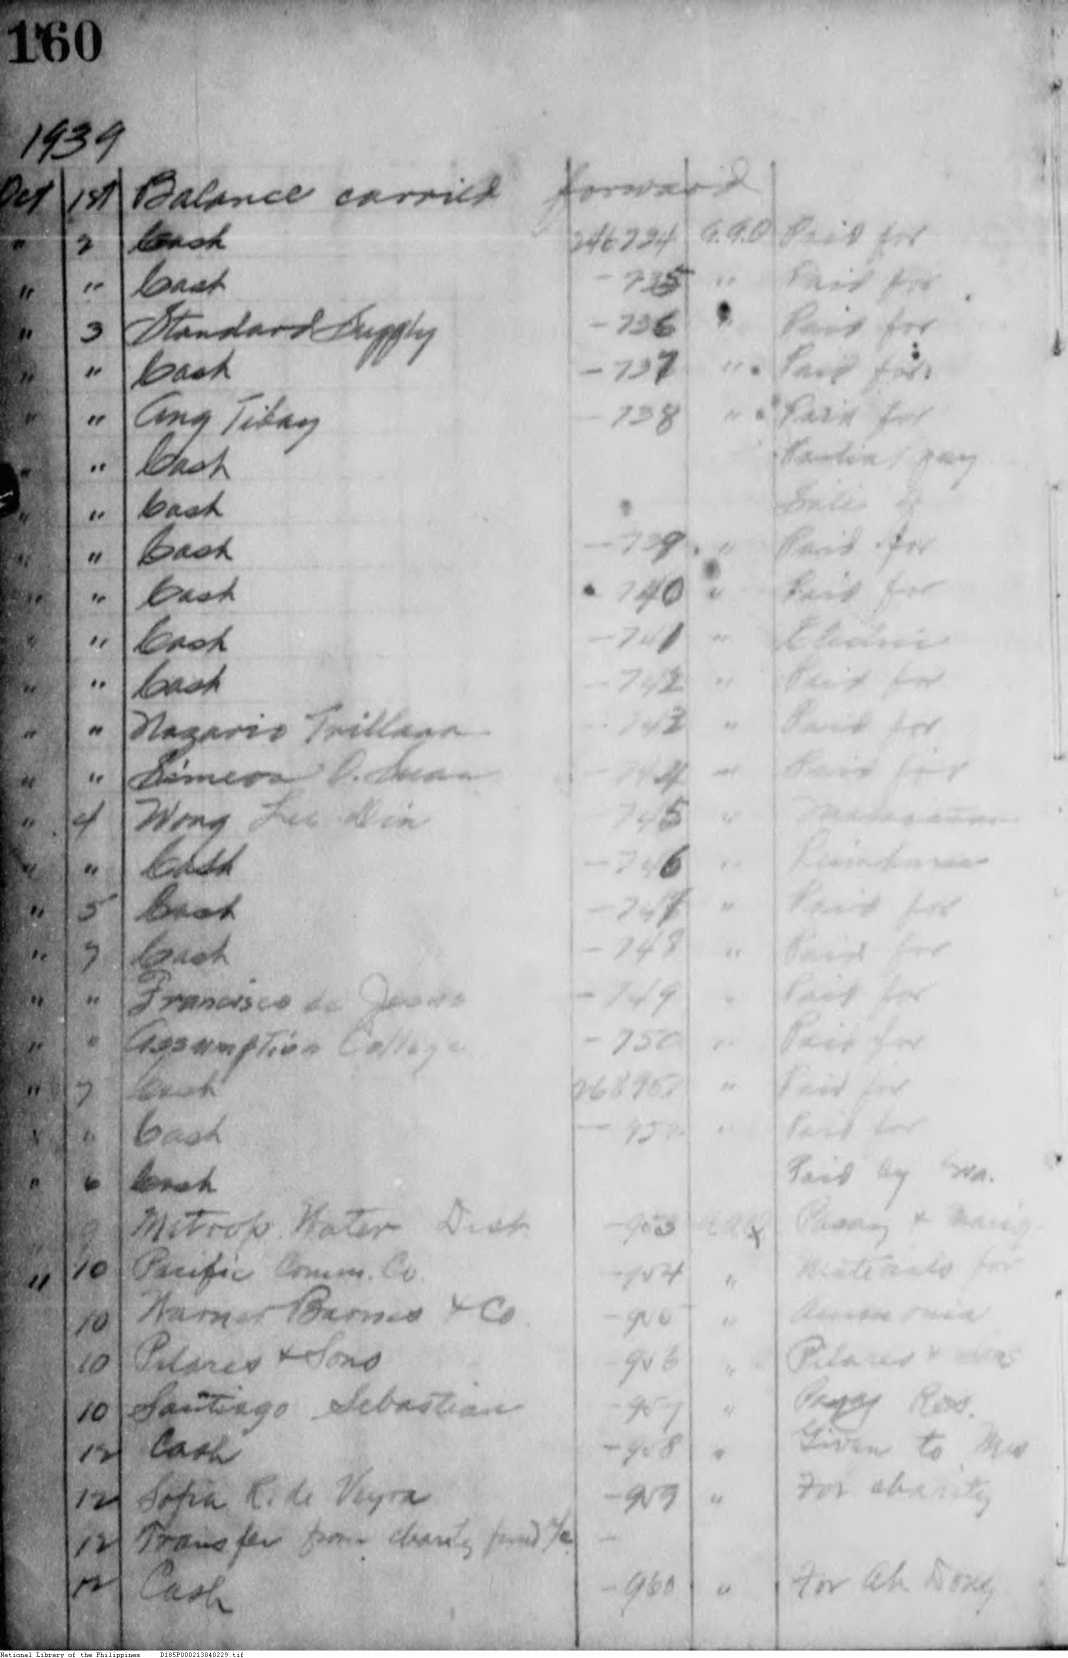 160
1939
Oct 1st Balance carried forward
" 2 Cash 246734 G.G.D Paid for
" " Cash - 735 " Paid for
" 3 Standard Supply - 736 " Paid for
" " Cash - 737 " Paid for
" " Ang Tibay - 738 " Paid for
" " Cash Partial pay
" " Cash
" " Cash - 739 " Paid for
" " Cash 740 " Paid for
" " Cash - 741 " Electric
" " Cash - 742 " Paid for
" " Nazario Trillana - 743 " Paid for
" " Simeon - 744 " Paid for
" 4 Wong Lee Din - 745 "
" " Cash - 746 "
" 5 Cash - 747 " Paid for
" 7 Cash - 748 " Paid for
" " Francisco de Jesus - 749 " Paid for
" " Assumption College - 750 " Paid for
" 7 Cash " Paid for
" " Cash " Paid for
" 6 Cash Paid by
Metrop. Water Dist. - 953 Pasay &
" 10 Pacific Comm. Co. - 954 " Materials for
10 Warner Barnes & Co. - 955 " Ammonia
10 Pilares & Sons - 956 " Pilares & Sons
10 Santiago Sebastian - 957 " Pasay Res.
12 Cash - 958 " Given to Mrs
12 Sofia R. de Veyra - 959 " For charity
12 Transfer from charity fund a/c -
12 Cash - 960 " For Ah Dong
National Library of the Philippines D185P000213840229.tif